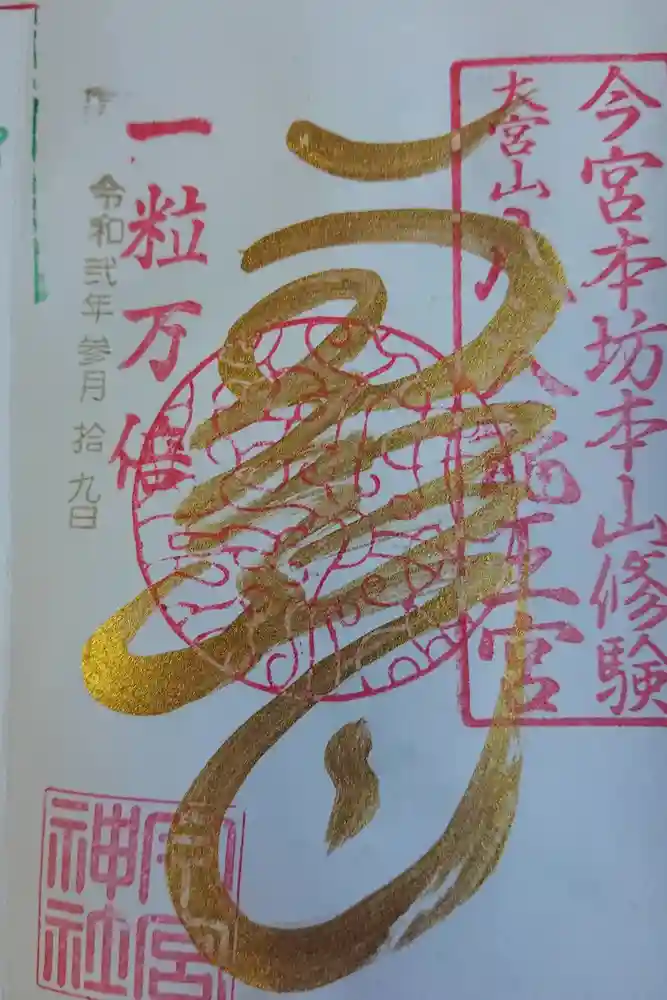 今宮本坊本山修験
大宮山八大龍王宮
一粒万倍
令和弐年参月拾九日
今宮
神社